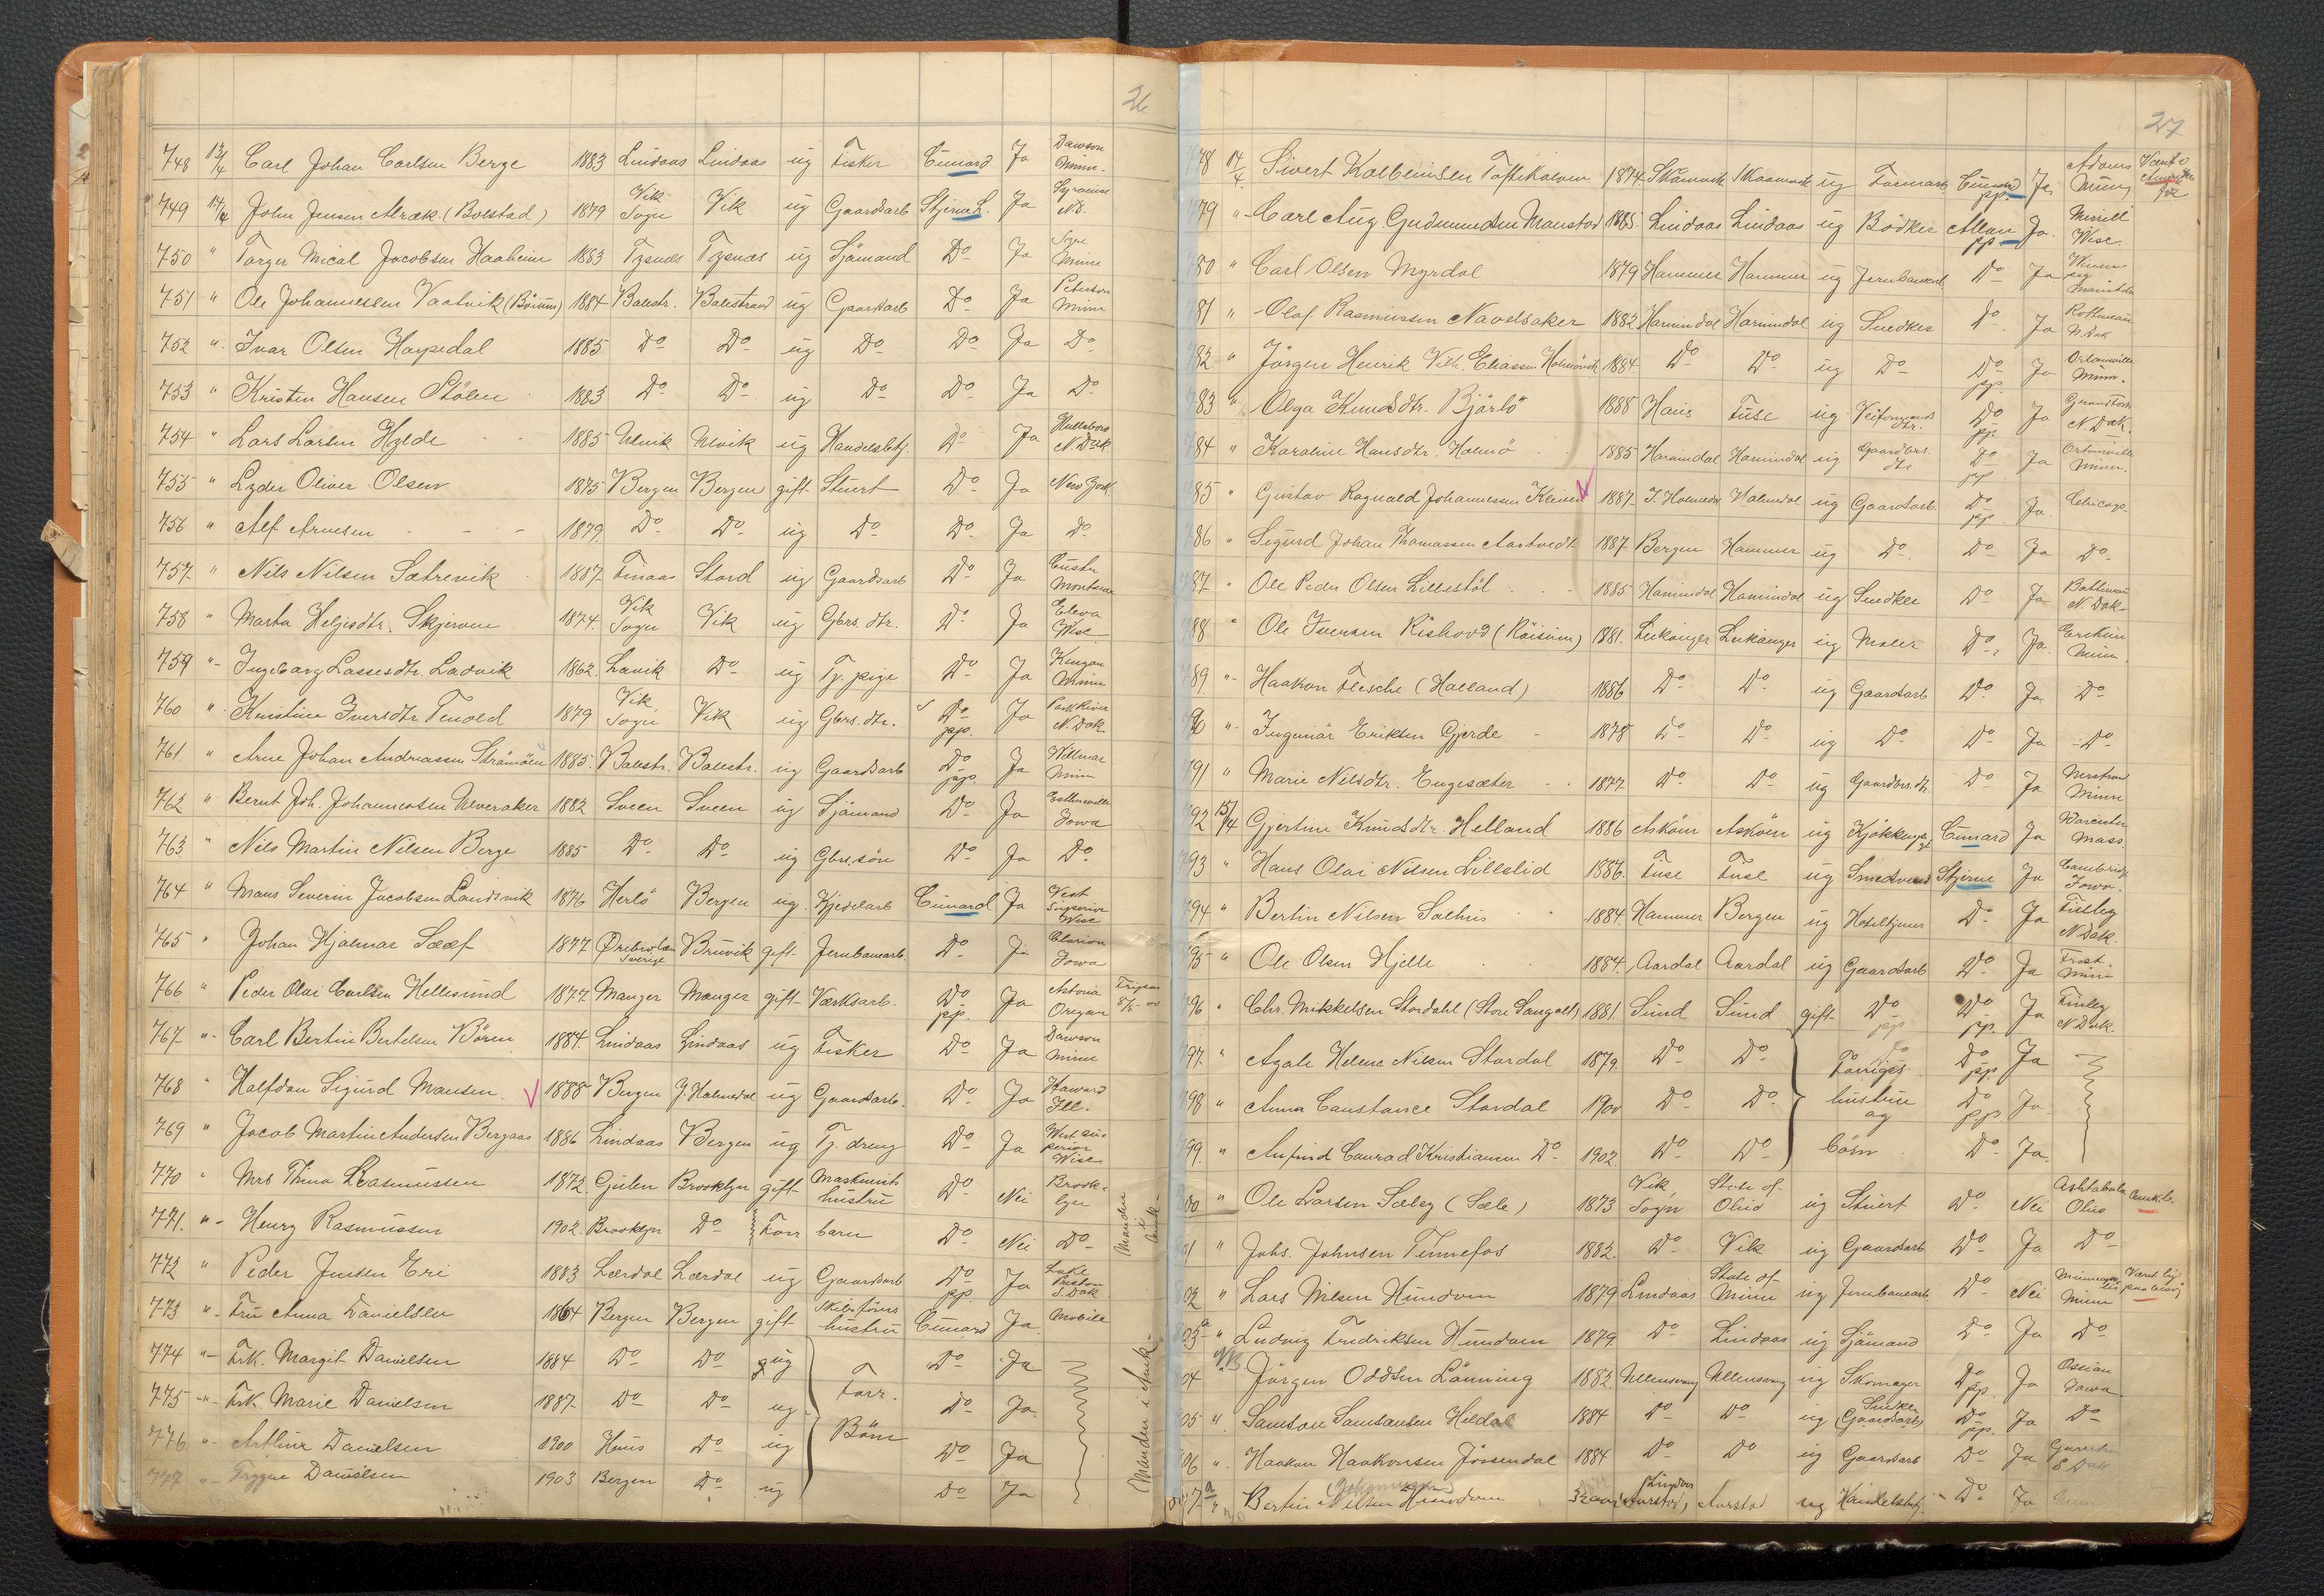 26
748 13/4 Carl Johan Carlsen Berge 1883 Lindaas Lindaas ug Fisker Cunard Ja Dawson Minn.
749 14/4 John Jensen (Bolstad) 1879 Vik Sogn Vik ug Gaardsarb Stjerne L. Ja Syracuse ND.
750 " Torger Mical Jacobsen Haaheim 1883 Tysnæs Tysnæs ug Sjömand Do Ja Minn
751 " Ole Johannessen Vaatvik (Böium) 1884 Balestr. Balestrand ug Gaardsarb Do Ja Peterson Minn
752 " Ivar Olsen Harpedal 1885 Do Do ug Do Do Ja Do
753 " Kristen Hansen Stölen 1883 Do Do ug Do Do Ja Do
754 " Lars Larsen Hylde 1885 Ulvik Ulvik ug Handelsbtj. Do Ja Hillsboro N. Dak.
755 " Lyder Oliver Olsen 1875 Bergen Bergen gift Stuert Do Ja New York.
756 " Alf Arnesen 1879. Do Do ug Do Do Ja Do
757. " Nils Nilsen Sætrevik 1887. Finaas Stord ug Gaardsarb Do Ja Custer Montana
758 " Marta Heljesdtr. Skjerven 1874. Vik Sogn Vik ug Gbrs. dtr. Do Ja Eleva Wisc
759 " Ingeborg Lassesdtr. Ladvik 1862. Lavik Do ug Tj. pige Do Ja Kenyon Minn
760 " Kristine Iversdtr Tenold 1879 Vik Sogn Vik ug Gbrs. dtr. Do pp. Ja Park River N. Dak
761 " Arne Johan Andreassen Strömöen 1885. Balestr. Balestr. ug Gaardsarb Do pp. Ja Willmar Minn
762 " Bernt Joh. Johannessen Ulveraker 1882 Sveen Sveen ug Sjömand Do Ja Estherville Iowa
763 " Nils Martin Nilsen Berge 1885 Do Do ug Gbrs.sön Do Ja Do
764 " Mons Severin Jacobsen Landsvik 1876 Herlö Bergen ug. Kjedelarb Cunard Ja Vest Superior Wisc
765 " Johan Hjalmar Sääf 1877 Örebro län Sverige Bruvik gift Jernbanearb. Do Ja Clarion Iowa
766 " Peder Olai Carlsen Hellesund 1877. Manger Manger gift Værksarb. Do pp. Ja Astoria Oregon
767 " Carl Bertin Bertelsen Bören 1884. Lindaas Lindaas ug Fisker Do Ja Dawson Minn
768 " Halfdan Sigurd Monsen 1888 Bergen Y. Holmedal ug Gaardsarb. Do Ja Haward Ill.
769 " Jacob Martin Andersen Bergaas 1886 Lindaas Bergen ug Tj. dreng Do Ja West Superior Wisc
770 " Mrs Thina Rasmussen 1872. Gulen Brooklyn gift Maskinists hustru Do Nei Brooklyn
771. " Henry Rasmussen 1902. Brooklyn Do Forr barn Do Nei Do
772 " Peder Jensen Eri 1883 Lærdal Lærdal ug Gaardsarb Do pp. Ja Lake Preston S. Dak
773 " Fru Anna Danielsen 1864 Bergen Bergen gift Skibsförers hustru Cunard Ja Mobile
774 " Frk. Margit Danielsen 1884 Do Do ug Forr. Do Ja
775 " Frk. Marie Danielsen 1887 Do Do ug Börn Do Ja
776 " Arthur Danielsen 1900 Haus Do ug Do Ja
777 " Trygve Danielsen 1903 Bergen Do ug Do Ja
Manden i Amk.
(Manden i Amk.
27
78 14/4. Sivert Kolbeinsen Toftekolven 1874. ug Formand Cunard pp. Ja Adams Minn
79 " Carl Aug. Gudmundsen Monstad 1885. Lindaas Lindaas ug Bödker Allan pp Ja. Merrill Wisc.
80 " Carl Olsen Myrdal 1879 Hammer Hammer ug Jernbanearb. Do Ja Manitoba
81 " Olaf Rasmussen Navelsaker 1882 Hornindal Hornindal ug Snedker Do Ja Bottineau N. Dak
82 " Jörgen Henrik Vilh. Eliassen Holmövik 1884 Do Do ug Do Do pp. Ja Ortonville Minn.
83 " Olga Knudsdtr. Björlö 1888 Haus Fuse ug dtr. Do pp. Ja Grand Forks N. Dak.
84 " Karoline Hansdtr. Holmö 1885 Hornindal Hornindal ug Gaardbrs. dtr Do pp Ja Ortonville Minn.
85 " Gustav Ragnvald Johannessen Kleiven 1887. Y. Holmedal Holmedal ug Gaardsarb. Do pp. Ja. Chicago.
86 " Sigurd Johan Thomassen Aartvedt 1887. Bergen Hammer ug Do. Do Ja Do
87. " Ole Peder Olsen Lillestöl 1885 Hornindal Hornindal ug Snedker Do Ja Bottineau N. Dak.
88 " Ole Iversen Rishovd (Röisum) 1881. Leikanger Leikanger ug Maler Do Ja. Minn.
89. " Haakon Flesche (Holland) 1886 Do Do ug Gaardsarb Do Ja Do
90 " Ingemar Eriksen Gjerde 1878 Do Do ug Do Do Ja Do
91 " Marie Nilsdtr. Engesæter 1877 Do Do ug Gaardbrs. dtr. Do Ja Nerstrand Minn
92 15/4 Gjertine Knudsdtr. Helland 1886 Asköen Asköen ug Cunard Ja Worcester Mass
93 " Hans Olai Nilsen Lilleslid 1886. Fuse Fuse ug Smedsvend Stjerne Ja Cambridge Iowa.
94 " Bertin Nilsen Salhus 1884. Hammer Bergen ug Do Ja Finley N Dak.
95 " Ole Olsen Hjelle 1884. Aardal Aardal ug Gaardsarb Do Ja Frost Minn
96 " Chr. Mikkelsen Stordahl (Store Sangolt) 1881. Sund Sund gift Do Do pp. Ja Finley N Dak.
97. " Agate Helene Nilsen Stordal 1879. Do Do Forriges Do pp Ja
98 " Anna Constance Stordal 1900 Do Do hustru og Do pp Ja
99. " Anfind Conrad Kristiansen Do 1902. Do Do börn Do Ja.
00 " Ole Larsen Sæley (Sæle) 1873 Vik, Sogn State of Ohio ug Stuert Do. Nei Ashtabula Ohio
01 " Johs. Johnsen Finnefos 1882. Do Vik ug Gaardsarb Do Ja Do
02 " Lars Nilsen Hundven 1879 Lindaas State of Minn ug Jernbanearb Do Nei Minneapolis Minn
03 " Ludvig Fredriksen Hundven 1879. Do Lindaas ug Sjömand Do Ja Do
NB.
04 Jörgen Oddsen Lönning 1882. Ullensvang Ullensvang ug Skomager Do pp. Ja Ossian Iowa
05 " Samson Samsonsen Hildal 1884 Do Do ug Snedker (Gaardsarb) Do pp. Ja Do
06 " Haakon Haakonsen Jösendal 1884 Do Do ug Gaardsarb Do Ja S Dak
07 Bertin Nilsen Hundven ug Handelsbetj. Do Ja